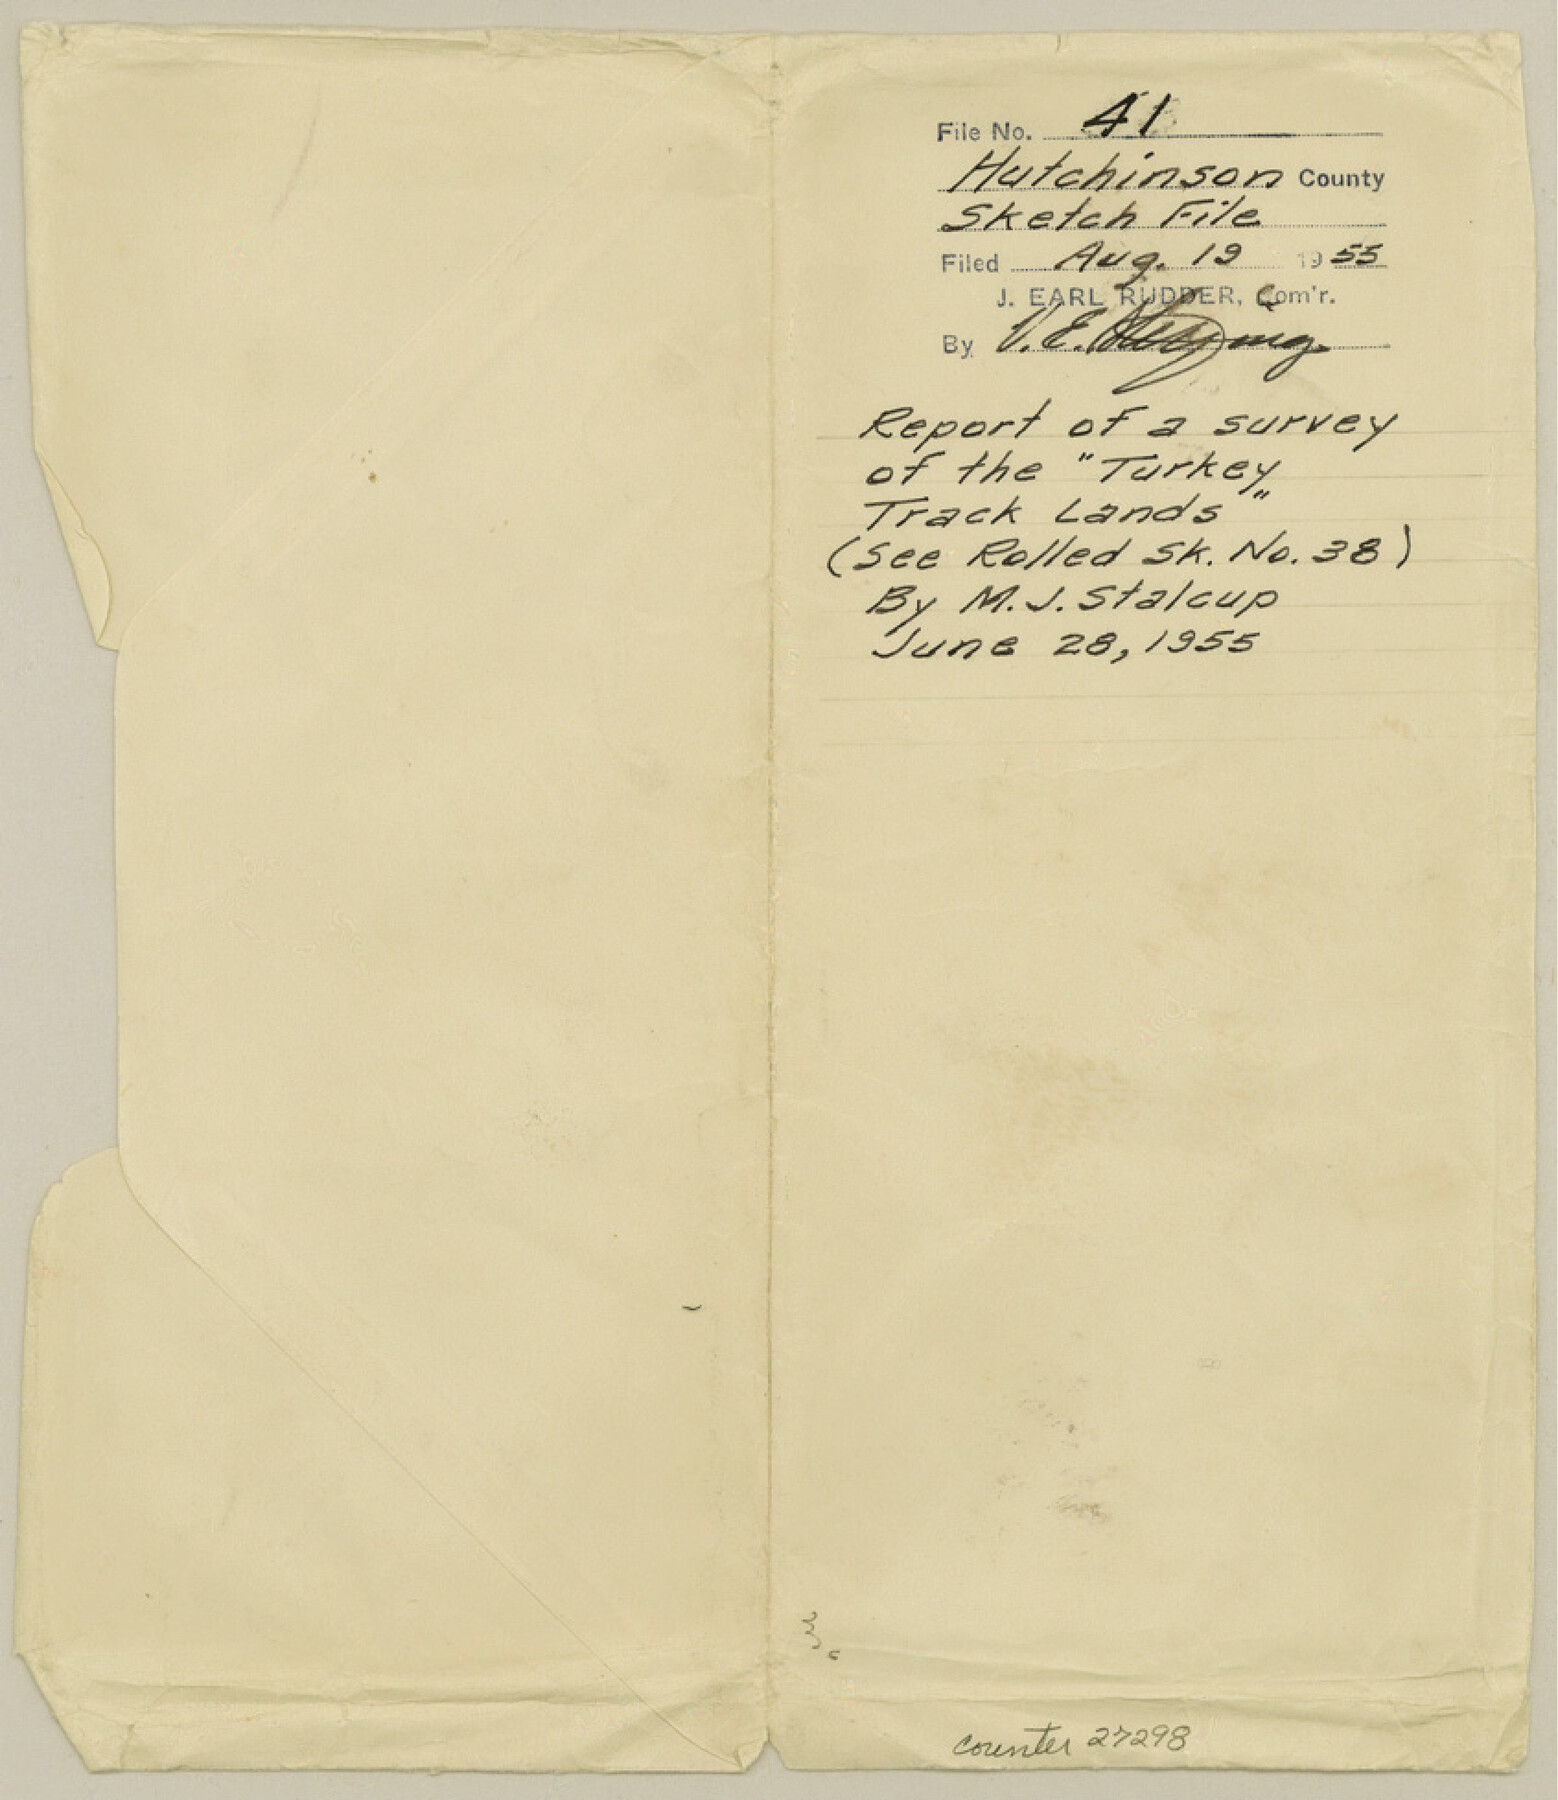 File No. 41
Hutchinson County
Sketch File
Filed Aug. 19 1955
J. EARL RUDDER, Com'r.
By V. E.
Report of a survey
of the "Turkey
Track Lands"
(See Rolled Sk. No. 38)
By M. J. Stalcup
June 28, 1955
counter 27298